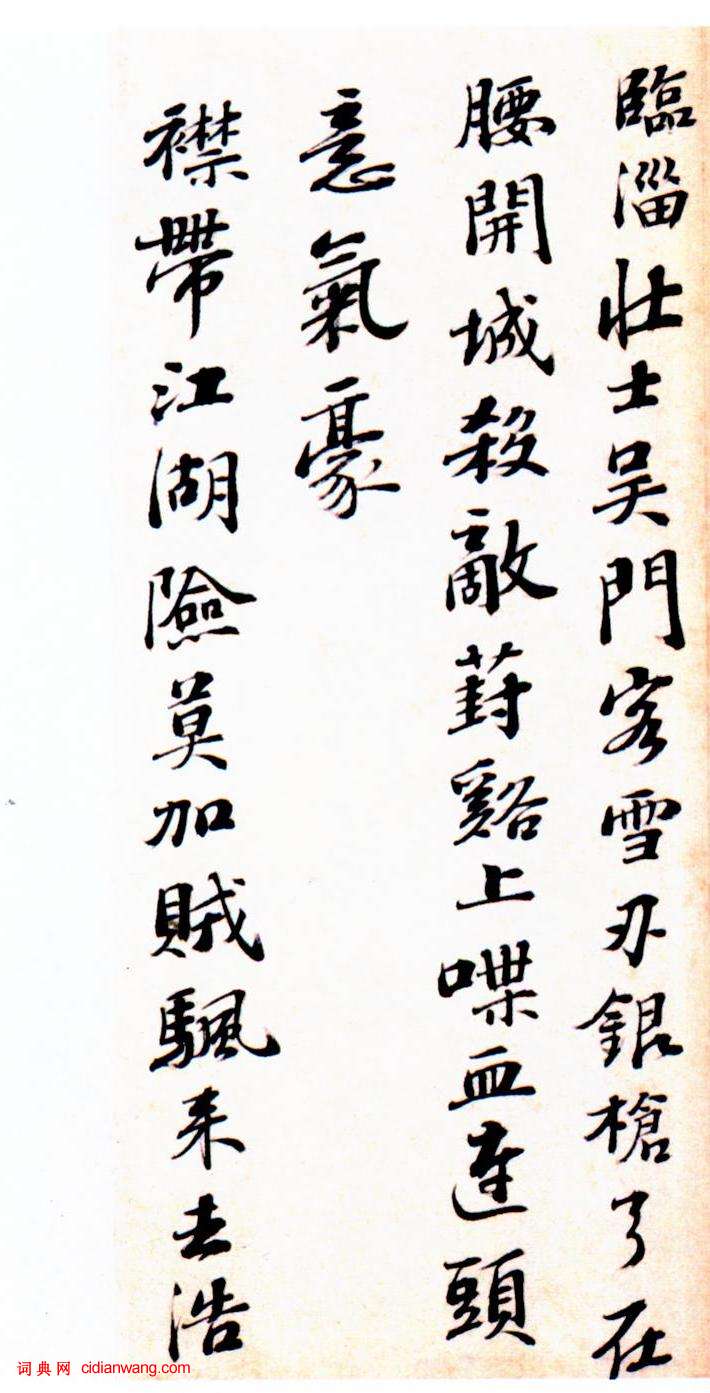 臨淄壯士吴門客雪刃銀槍弓在
腰開城殺敵葑谿上喋血連頭
意氣豪
襟帶江湖險莫加賊颿来去浩
词典网 cidianwang.com